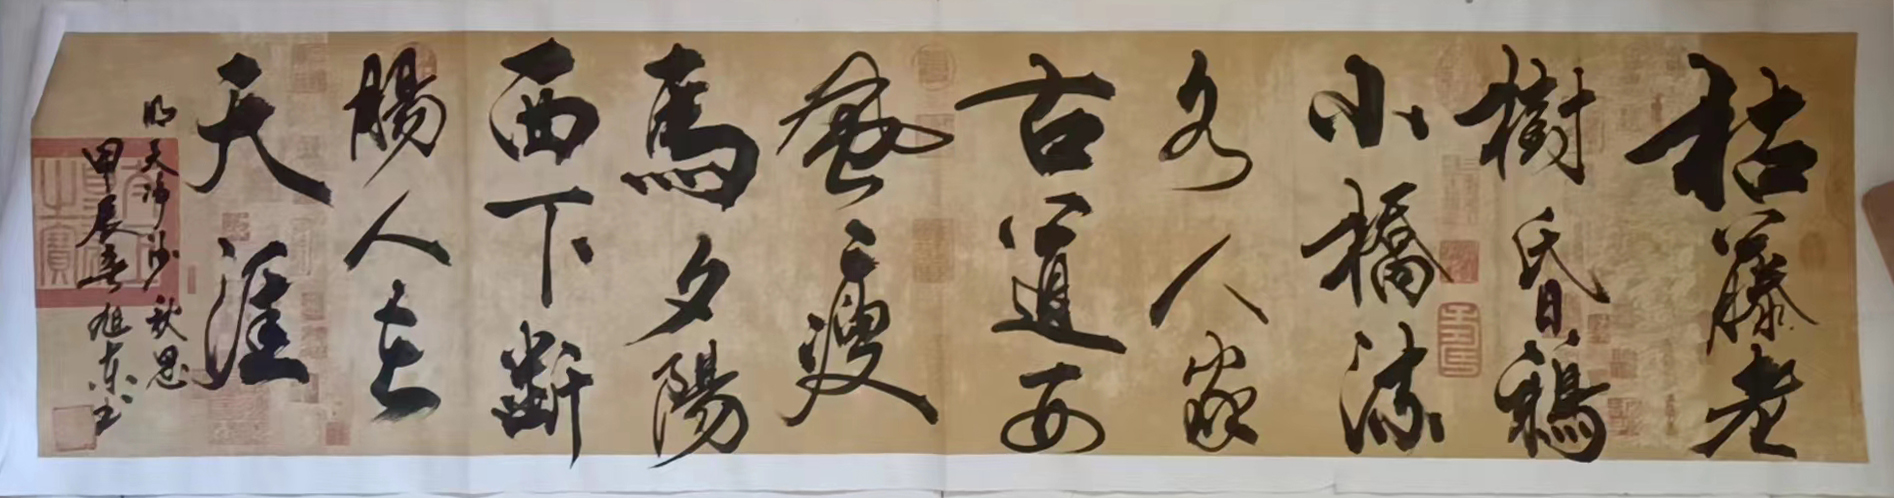 枯藤老
樹昏鴉
小橋流
水人家
古道西
風瘦
馬夕陽
西下斷
腸人在
天涯
天净沙 秋思
甲辰春旭东书